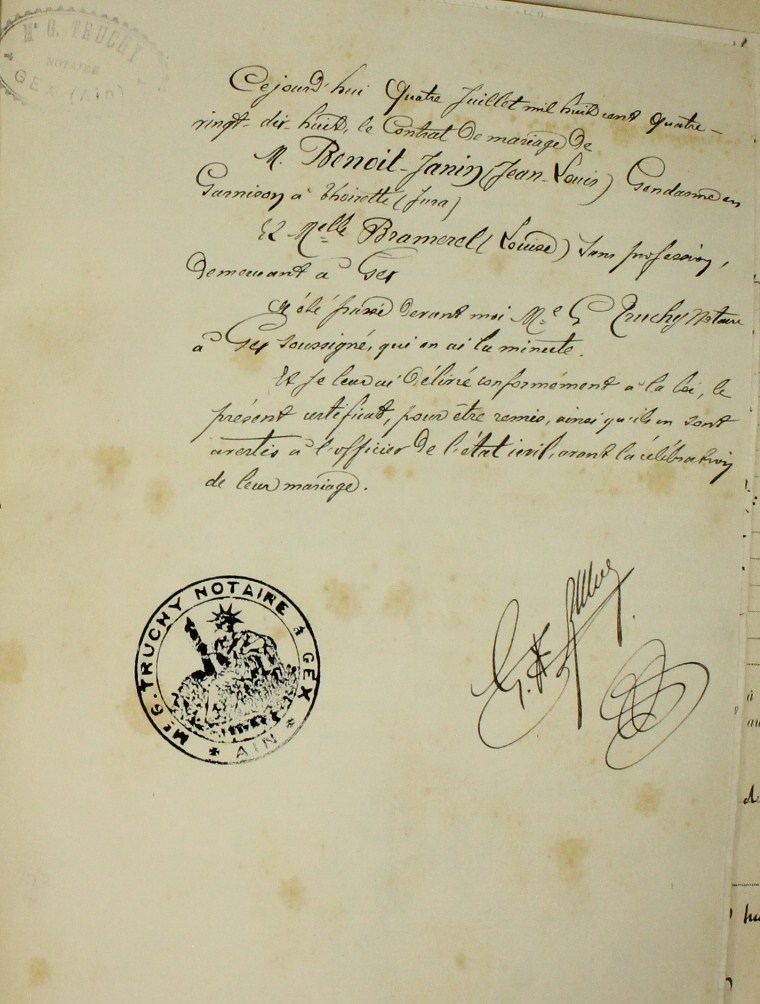 Me G. TRUCHY
NOTAIRE
GEX (Ain)
Cejourd'hui Quatre Juillet mil huit cent quatre-
vingt-dix-huit, le Contrat de mariage de
M. Benoit-Janin (Jean-Louis) Gendarme en
Garnison à Thoirette (Jura)
Et Melle Bramerel (Louise) sans profession,
demeurant à Gex
A été passé devant moi Me G Truchy Notaire
à Gex soussigné, qui en ai la minute.
Et je leur ai délivré conformément à la loi, le
présent certificat, pour être remis, ainsi qu'ils en sont
avertis à l'officier de l'état civil, avant la célébration
de leur mariage.
Me G. TRUCHY NOTAIRE à GEX
AIN